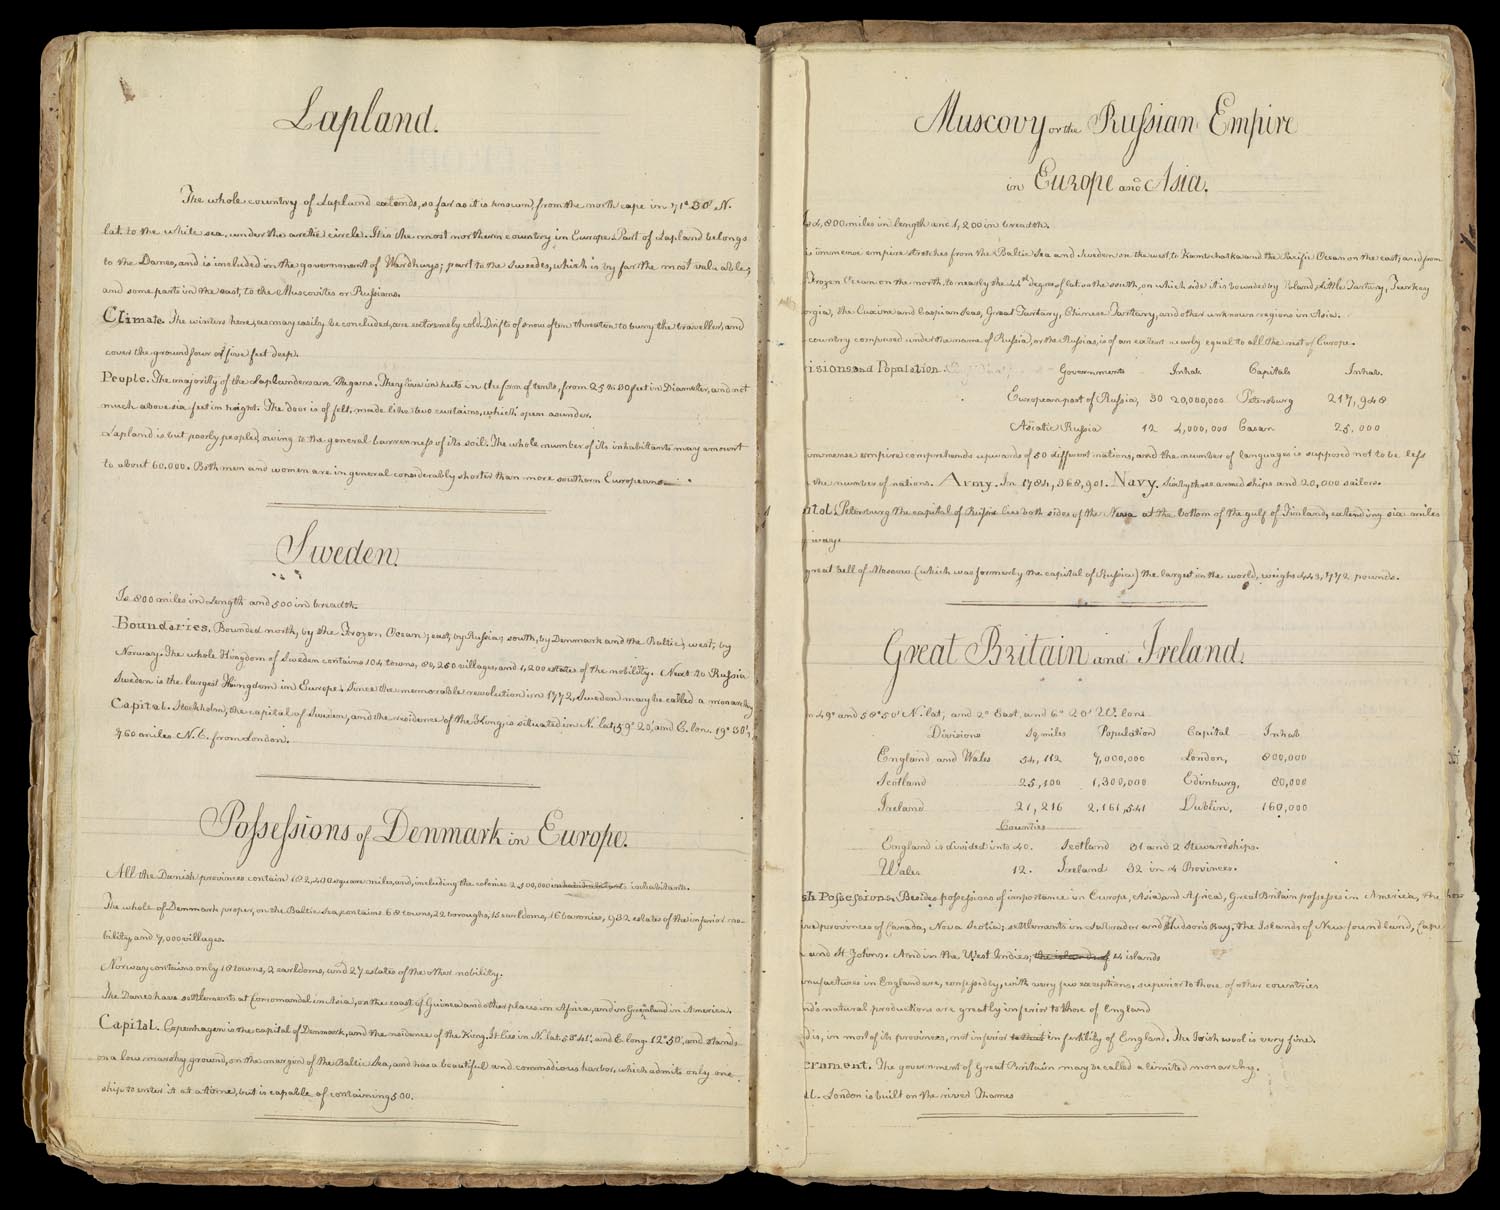 Lapland.
The whole country of Lapland extends, so far as it is known, from the north cape in 71° 30' N.
lat. to the white sea, under the arctic circle. It is the most northern country in Europe. Part of Lapland belongs
to the Danes, and is included in the government of Wardhuys; part to the Sweedes, which is by far the most valuable;
and some parts in the east, to the Muscovites or Russians.
Climate. The winters here, as may easily be concluded, are extremely cold. Drifts of snow often threaten to bury the traveller, and
cover the ground four or five feet deep.
People. The majority of the Laplanders are Pagans. They live in huts in the form of tents, from 25 to 30 feet in Diameter, and not
much above six feet in height. The door is of felt, made like two curtains, which open asunder.
Lapland is but poorly peopled, owing to the general barrenness of its soil. The whole number of its inhabitants may amount
to about 60.000. Both men and women are in general considerably shorter than more southern Europeans.
Sweden.
Is 800 miles in Length and 500 in breadth.
Boundaries. Bounded north, by the Frozen Ocean; east, by Russia; south, by Denmark and the Baltic; west, by
Norway. The whole Kingdom of Sweden contains 104 towns, 80,250 villages, and 1,200 estates of the nobility. Next to Russia
Sweden is the largest Kingdom in Europe. Since the memorable revolution in 1772, Sweden may be called a monarchy
Capital. Stockholm, the capital of Sweden, and the residence of the King, is situated in N. lat. 59° 20', and E. lon. 19° 30',
760 miles N.E. from London.
Possessions of Denmark in Europe.
All the Danish provinces contain 182,400 square miles, and, including the colonies 2,500,000 inhabitants.
The whole of Denmark proper, on the Baltic Sea, contains 68 towns, 22 boroughs, 15 earldoms, 16 baronies, 932 estates of the inferior no-
bility, and 7,000 villages.
Norway contains only 18 towns, 2 earldoms, and 27 estates of the other nobility.
The Danes have settlements at Coromandal in Asia, on the coast of Guinea and other places in Africa, and in Greenland in America.
Capital. Copenhagen is the capital of Denmark, and the residence of the King. It lies in N. lat. 55° 41', and E. long. 12° 50', and stands
on a low marshy ground, on the margin of the Baltic Sea, and has a beautiful and commodious harbor, which admits only one
ship to enter it at a time, but is capable of containing 500.
Muscovy or the Russian Empire
in Europe and Asia.
Is 4,800 miles in length and 1,200 in breadth.
is immense empire stretches from the Baltic Sea and Sweden on the west, to Kamtschatka and the Pacific Ocean on the east; and from
Frozen Ocean on the north, to nearly the 44th degree of lat. on the south, on which side it is bounded by Poland, Little Tartary, Turkey
orgia, the Euxine and Caspian Seas, Great Tartary, Chinese Tartary, and other unknown regions in Asia.
country comprised under the name of Russia, or the Russias, is of an extent nearly equal to all the rest of Europe.
isions and Population. Governments Inhab. Capitals Inhab.
European part of Russia, 30 20,000,000 Petersburg 217,948
Asiatic Russia 12 4,000,000 Casan 25,000
immense empire comprehends upwards of 50 different nations, and the number of languages is supposed not to be less
the number of nations. Army. In 1784, 368,901. Navy. Sixty three armed ships and 20,000 sailors.
ital. Petersburg the capital of Russia lies both sides of the Neva at the bottom of the gulf of Finland, extending six miles
way.
great bell of Moscow (which was formerly the capital of Russia) the largest in the world, weighs 443,772 pounds.
Great Britain and Ireland.
n 49° and 58° 50' N. lat, and 2° East, and 6° 20' W. lon.
Divisions Sq. miles Population Capital Inhab
England and Wales 54,112 7,000,000 London, 800,000
Scotland 25,100 1,300,000 Edinburg, 80,000
Ireland 21,216 2,161,541 Dublin, 160,000
Counties
England is divided into 40. Scotland 31 and 2 Stewardships.
Wales 12. Ireland 32 in 4 Provinces.
sh Possessions. Besides possessions of importance in Europe, Asia and Africa, Great Britain possesses in America, the
ive provinces of Canada, Nova Scotia; settlements in Labrador and Hudson's Bay, the Islands of Newfoundland, Cape
and St. Johns. And in the West Indies, the islands of 14 islands
anufactures in England are, confessedly, with very few exceptions, superior to those of other countries
nd's natural productions are greatly inferior to those of England
d is, in most of its provinces, not inferior to that in fertility of England. The Irish wool is very fine.
ernment. The government of Great Britain may be called a limited monarchy.
al. London is built on the river Thames